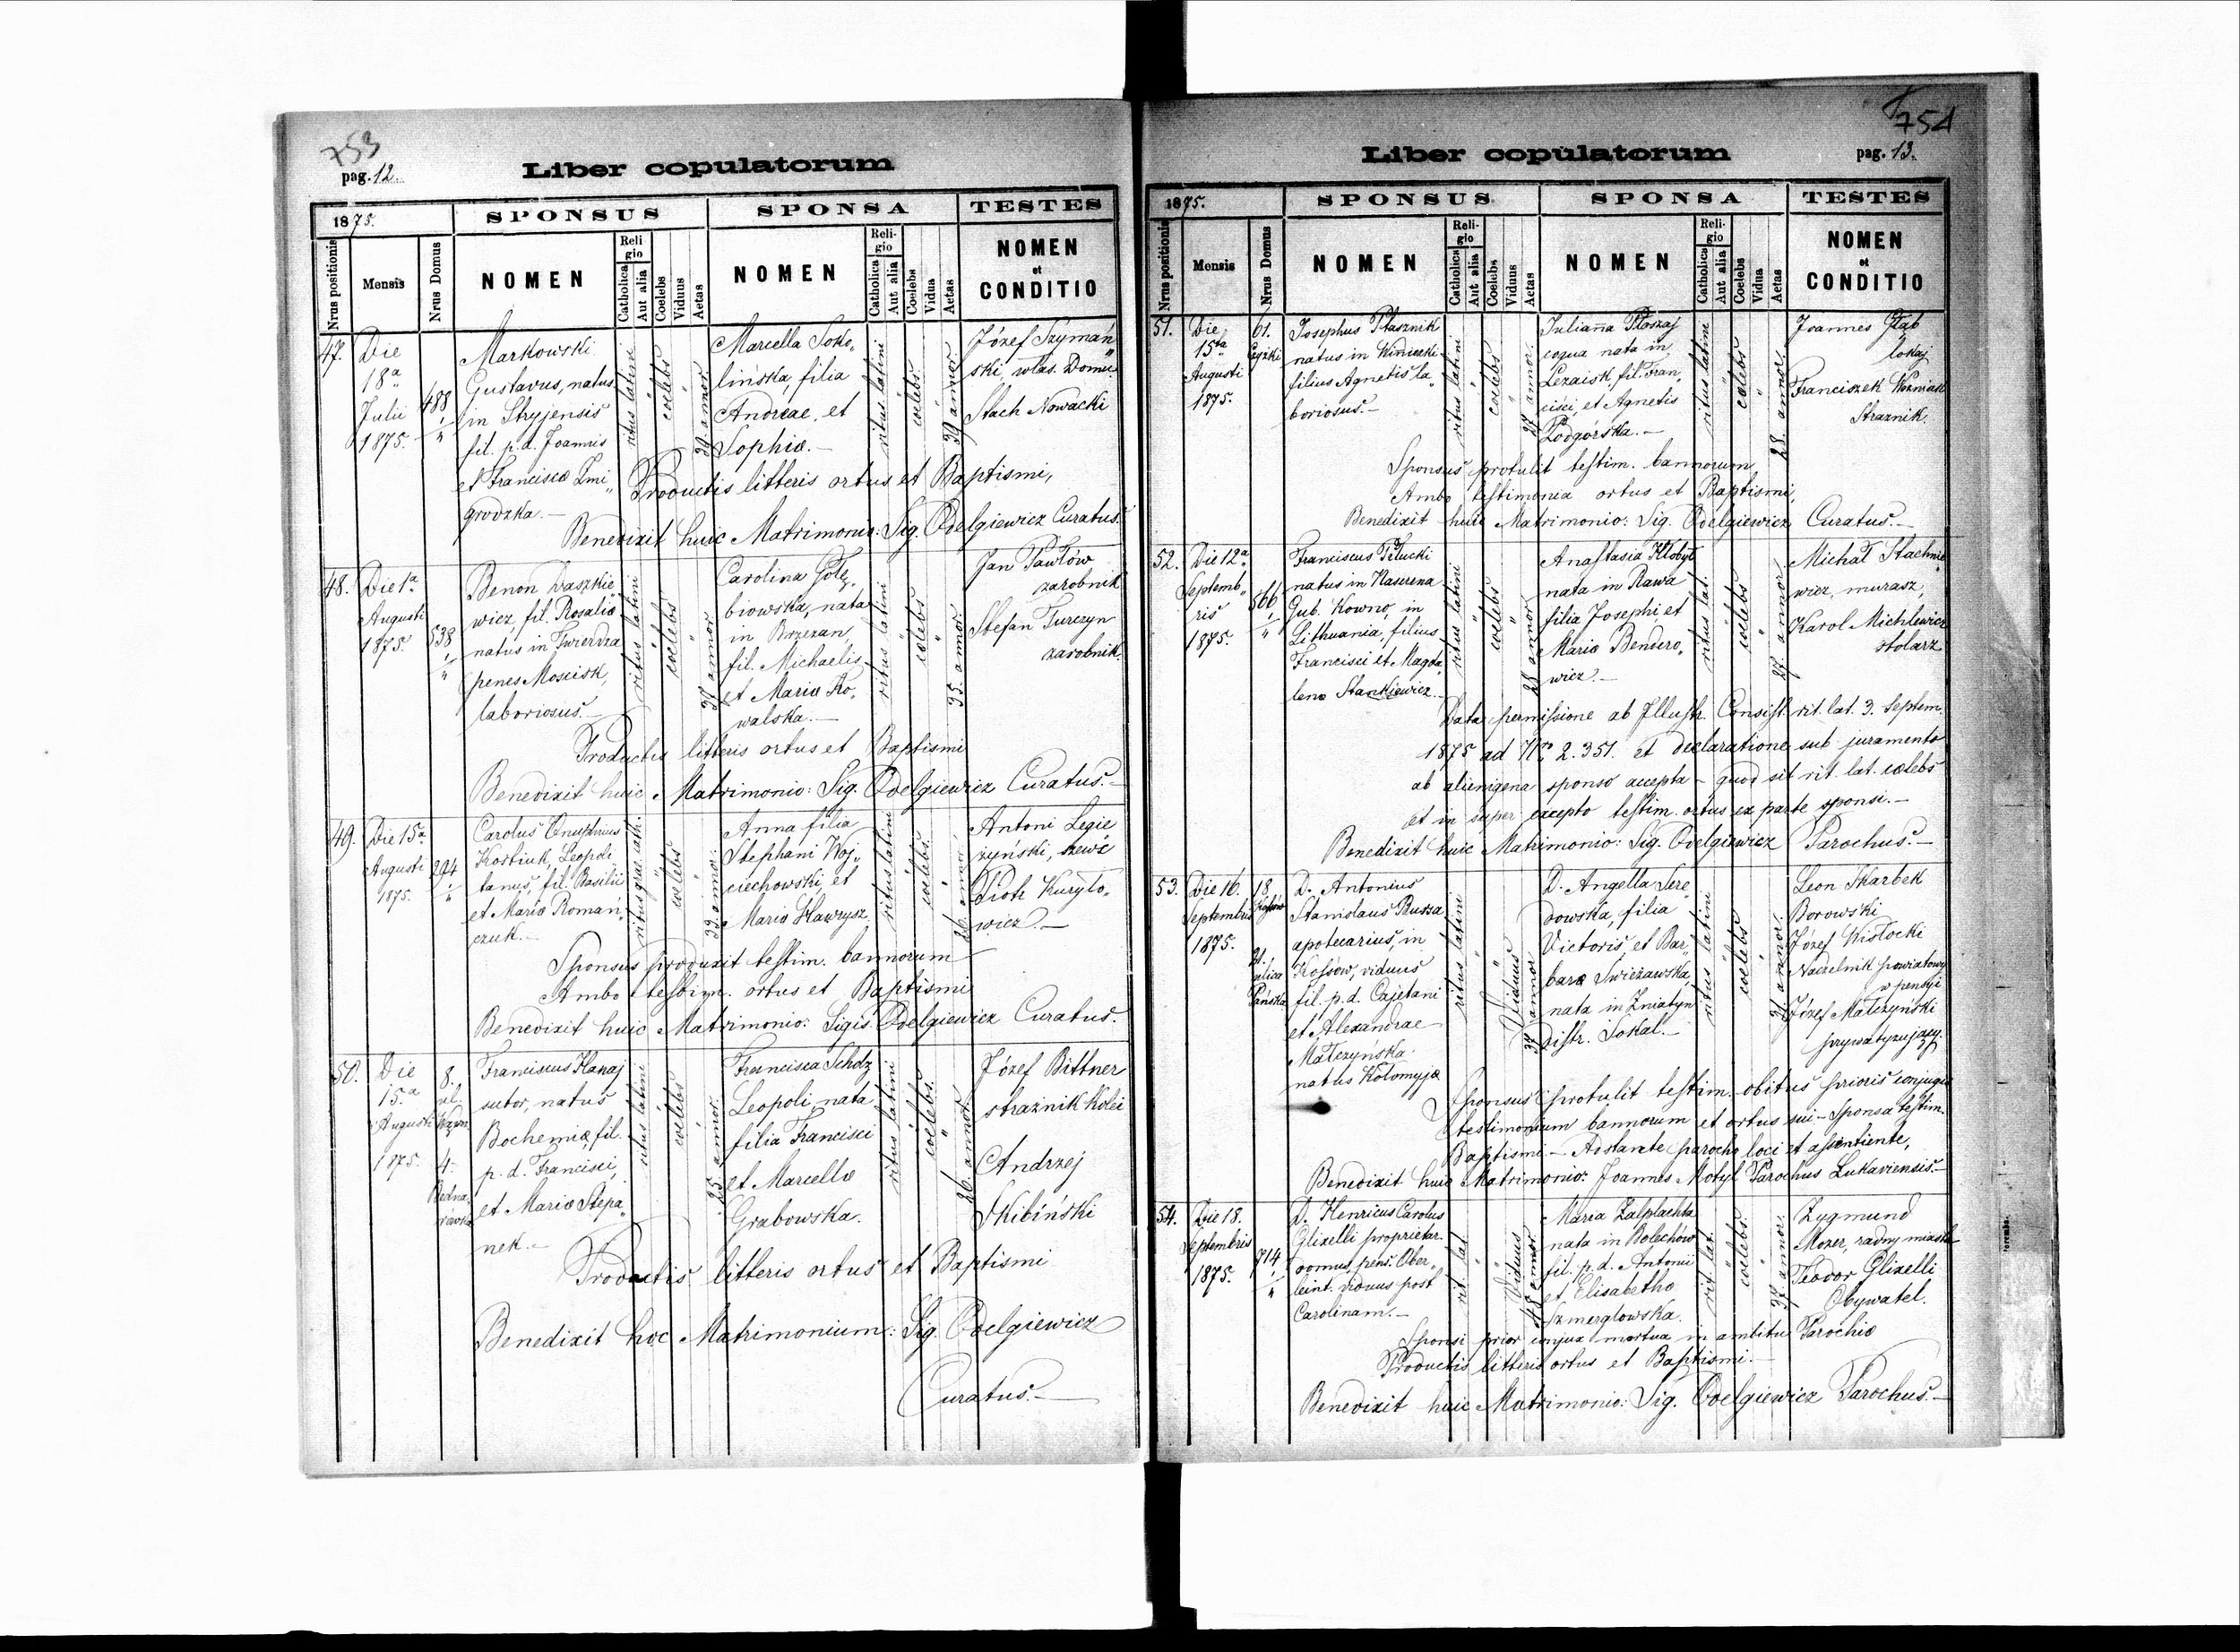 753
pag. 12.
Liber copulatorum
1875.
SPONSUS
SPONSA
TESTES
Nrus positionis
Mensis
Nrus Domus
NOMEN
Reli
gio
Catholica
Aut alia
Coelebs
Viduus
Aetas
NOMEN
Reli-
gio
Catholica
Aut alia
Coelebs
Vidua
Aetas
NOMEN
et
CONDITIO
47.
Die
18a
Julii
1875.
488
Markowski
Gustavus, natus
in Stryjensis
fil. p. d. Joannis
et Francisca Zmi„
grodzka.—
ritus latini
coelebs
39 annor.
Marcella Soko„
lińska, filia
Andreae, et
Sophiæ.—
ritus latini
coelebs
39 annor
Józef Szymań„
ski właś. Domu.
Stach Nowacki
Productis litteris ortus et Baptismi,
Benedixit huic Matrimonio: Sig. Odelgiewicz Curatus.
48.
Die 1a
Augusti
1875.
538
Benon Waszkie„
wicz, fil. Rosaliæ
natus in Twierdza
penes Mościsk,
laboriosus.—
ritus latini
coelebs
annor
Carolina Gołę„
biowska, nata
in Brzezan,
fil. Michaelis
et Mariæ Ko„
walska.—
ritus latini
coelebs
35. annor
Jan Pawłów
zarobnik
Stefan Turczyn
zarobnik.
Productis litteris ortus et Baptismi
Benedixit huic Matrimonio: Sig. Odelgiewicz Curatus.—
49.
Die 15a
Augusti
1875.
294
Carolus Onuphrius
Kostiuk, Leopoli„
tanus, fil. Basilii
et Mariæ Romań„
czuk.—
ritus græc. cath.
coelebs
annor.
Anna filia
Stephani Woj„
ciechowski, et
Mariæ Hawrysz.
ritus latini
coelebs.
26. annor
Antoni Legie
żyński, szewc
Piotr Kuryło„
wicz.—
Sponsus produxit testim. bannorum
Ambo testim. ortus et Baptismi
Benedixit huic Matrimonio: Sigis. Odelgiewicz Curatus.
50.
Die
15.a
Augusti
1875.
8.
ul.
4.
Bedna„
rówka
Franciscus Hanaj
sutor, natus
Bochemiæ, fil.
p. d. Francisci,
et Mariæ Stepa„
nek.—
ritus latini
coelebs
25 annor.
Francisca Scholz
Leopoli nata
filia Francisci
et Marcellæ
Grabowska.
ritus latini
coelebs.
26. annor.
Józef Bittner
strażnik Kolei
Andrzej
Skibiński
Productis litteris ortus et Baptismi
Benedixit hoc Matrimonium: Sig. Odelgiewicz
Curatus.—
754
pag. 13.
Liber copulatorum
1875.
SPONSUS
SPONSA
TESTES
Nrus positionis
Mensis
Nrus Domus
NOMEN
Reli-
gio
Catholica
Aut alia
Coelebs
Viduus
Aetas
NOMEN
Reli-
gio
Catholica
Aut alia
Coelebs
Vidua
Aetas
NOMEN
et
CONDITIO
51.
Die
15ta
Augusti
1875.
61.
Josephus Ptasznik
natus in Winiczki
filius Agnetis la„
boriosus.—
ritus latini
coelebs
annor.
Julianna Ptaszaj
coqua nata in
Leżaisk, fil. Fran„
cisci, et Agnetis
Podgórska.—
ritus latini
coelebs
28. annor.
Joannes Głąb
lokaj
Franciszek Woźniak
Straznik.
Sponsus protulit testim. bannorum,
Ambo testimonia ortus et Baptismi,
Benedixit huic Matrimonio: Sig. Odelgiewicz Curatus.—
52.
Die 12a
Septemb„
ris
1875.
566
Franciscus Pilucki
natus in Kasurena
Gub. Kowno, in
Lithuania, filius
Francisci et Magda„
lenæ Stankiewicz.—
ritus latini
coelebs
28 annor
Anastasia Kłobyt
nata in Rawa
filia Josephi, et
Mariæ Bendero„
wicz.—
ritus lat.
coelebs
annor
Michał Stachnie„
wicz, murasz,
Karol Michlewicz
stolarz
Data permissione ab Illustr. Consist. rit. lat. 3. Septem.
1875 ad Nro 2.351. et declaratione sub juramento
ab alienigena sponso accepta – quod sit rit. lat. coelebs
et in super excepto testim. ortus ex parte sponsi.—
Benedixit huic Matrimonio: Sig. Odelgiewicz Parochus.—
53.
Die 16.
Septembris
1875.
18
Kossów
21.
ulica
Pańska
D. Antonius
Stanislaus Russa
apotecarius, in
Kossów, viduus
fil. p. d. Cajetani
et Alexandrae
Matczyńska.
natus Kołomyjæ
ritus latini
Viduus
annor
D. Angella Sere„
dowska, filia
Victoris, et Bar„
baræ Swieżawska,
nata in Zniatyn
Distr. Sokal.—
ritus latini
coelebs
annor.
Leon Skarbek
Borowski
Józef Kisłocki
Naczelnik powiatowy
w pensji
Józef Matczyński
prywatyzujący.
Sponsus protulit testim. obitus prioris conjugis
testimonium bannorum et ortus sui – Sponsa testim.
Baptismi – Adstante parocho loci et assentiente,
Benedixit huic Matrimonio: Joannes Motyl Parochus Lukaviensis.—
54.
Die 18.
Septembris
1875.
714
D. Henricus Carolus
Glixelli proprietar.
domus, pens. Ober„
leint. viduus post
Carolinam.—
rit. lat
Viduus
48 annor
Maria Zalplachta
nata in Bolechów
fil. p. d. Antonii
et Elisabethæ
Szmerglowska.
rit. lat.
coelebs.
annor.
Zygmund
Mozer, radny miasta
Teodor Glixelli
Obywatel.
Sponsi prior conjux mortua in ambitu Parochiæ
Productis litteris ortus et Baptismi.—
Benedixit huic Matrimonio: Sig. Odelgiewicz Parochus.—